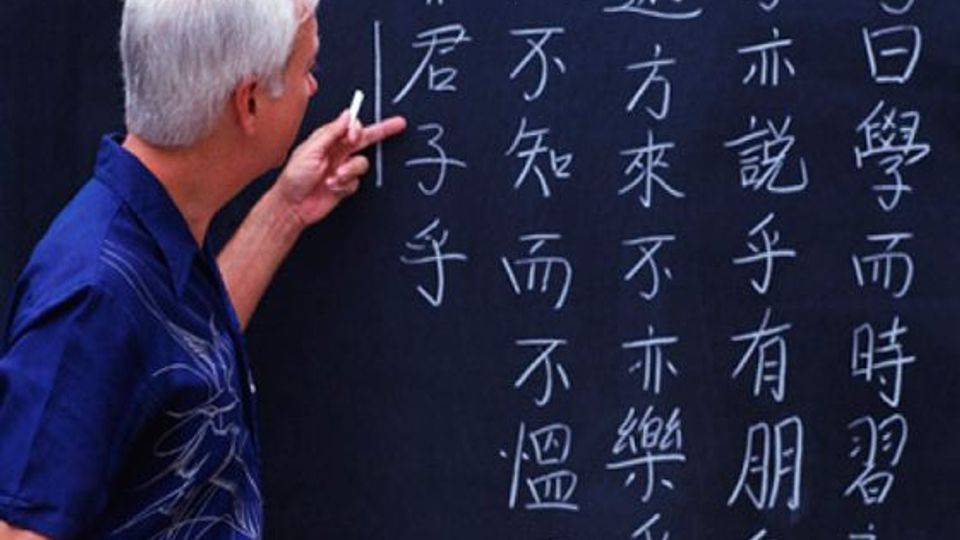 曰學而時習
亦說乎有朋
方來不亦樂
不知而不慍
君子乎